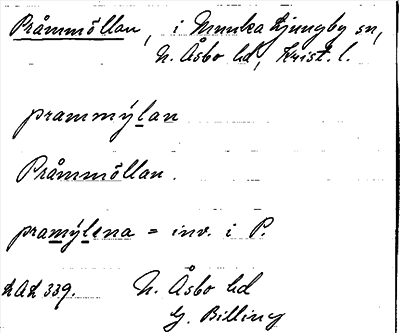 Pråmmöllan, i Munka Ljungby sn,
N. Åsbo hd, Krist. l.
prammýlan
Pråmmöllan.
pramýlena = inv. i P.
LAL 339. N. Åsbo hd
G. Billing